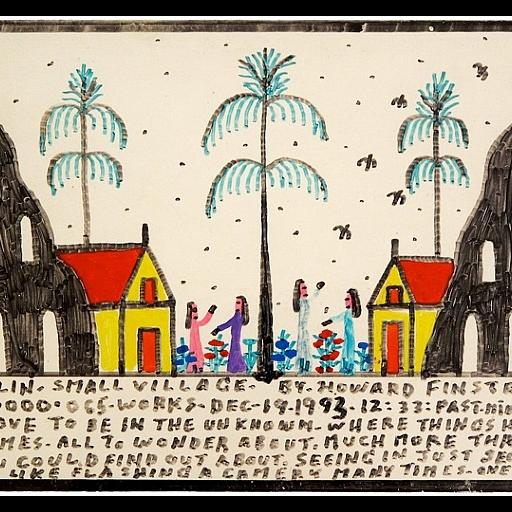 LIN. SMALL VILLAGE. BY. HOWARD FINSTE
000. OGG. WORKS. DEC-19.1993. 12:33: PAST. MI
OVE TO BE IN THE UNKNOWN. WHERE THINGS H
MES. ALL TO WONDER ABOUT. MUCH MORE THR
COULD FIND OUT ABOUT. SEEING IN JUST SE
LIKE FLASHING A CAMERY MANY TIMES. ONE